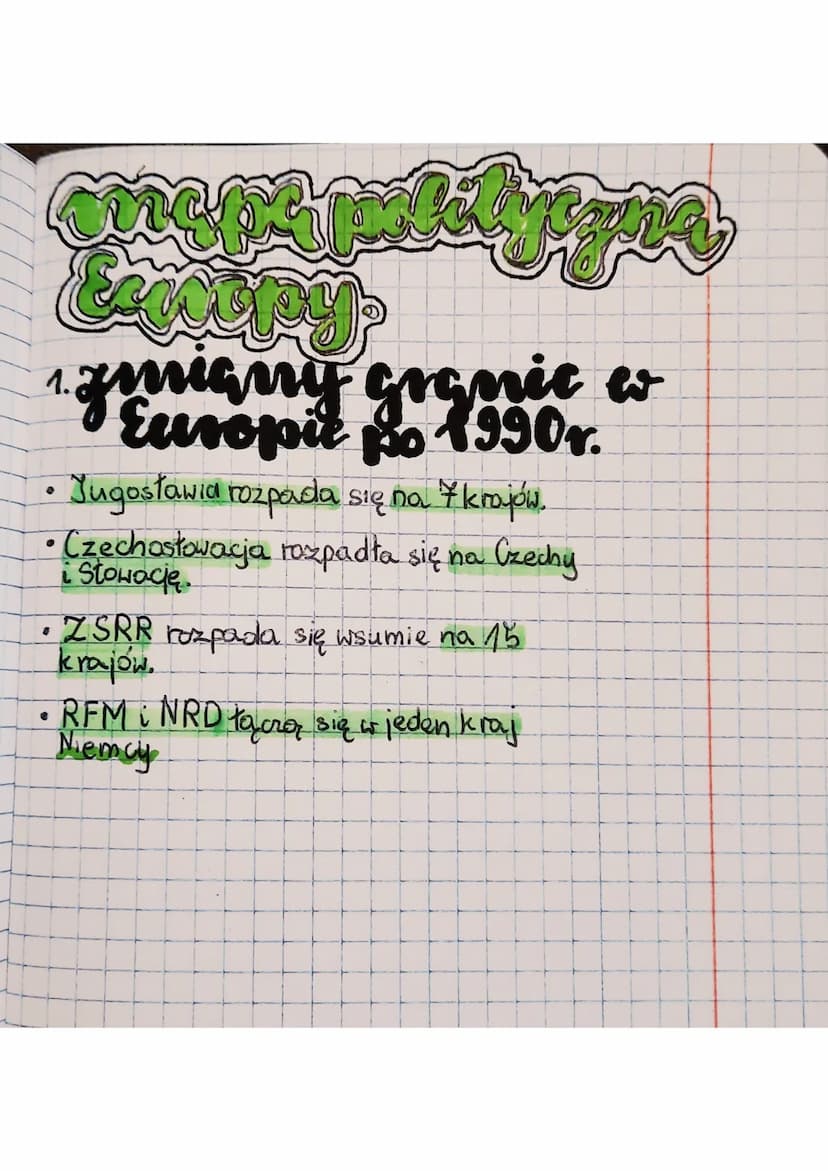 mapa polityczna
Europy.
1. zmiany granic w
Europie po 1990r.
• Jugosławia rozpada się na 7 krajów.
• Czechosłowacja rozpadła się na Czechy
i Słowację.
• ZSRR rozpada się wsumie na 15
krajów.
• RFM i NRD łączą się w jeden kraj
Niemcy